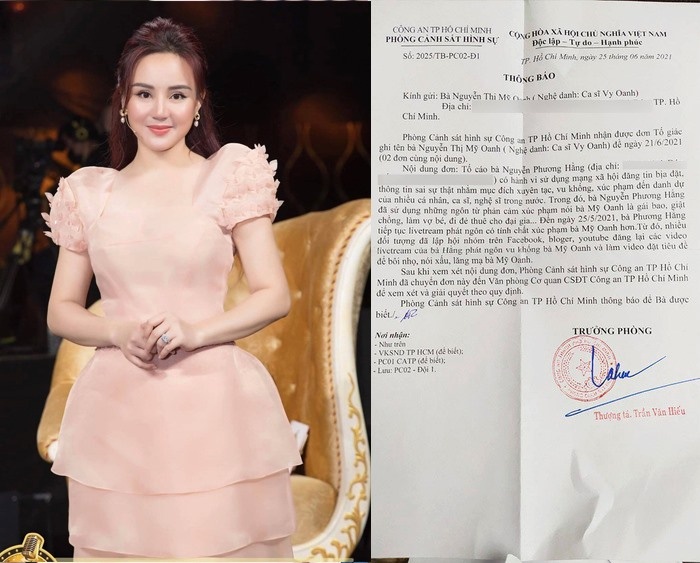 CÔNG AN TP HỒ CHÍ MINH
PHÒNG CẢNH SÁT HÌNH SỰ
CỘNG HÒA XÃ HỘI CHỦ NGHĨA VIỆT NAM
Độc lập – Tự do – Hạnh phúc
Số: 2025/TB-PC02-Đ1
TP Hồ Chí Minh, ngày 25 tháng 06 năm 2021
THÔNG BÁO
Kính gửi: Bà Nguyễn Thị Mỹ Oanh ( Nghệ danh: Ca sĩ Vy Oanh)
Địa chỉ: TP. Hồ
Chí Minh.
Phòng Cảnh sát hình sự Công an TP Hồ Chí Minh nhận được đơn Tố giác
ghi tên bà Nguyễn Thị Mỹ Oanh ( Nghệ danh: Ca sĩ Vy Oanh) đề ngày 21/6/2021
(02 đơn cùng nội dung).
Nội dung đơn: Tố cáo bà Nguyễn Phương Hằng (địa chỉ:
) có hành vi sử dụng mạng xã hội đăng tin bịa đặt,
thông tin sai sự thật nhằm mục đích xuyên tạc, vu khống, xúc phạm đến danh dự
của nhiều cá nhân, ca sĩ, nghệ sĩ trong nước. Trong đó, bà Nguyễn Phương Hằng
đã sử dụng những ngôn từ phản cảm xúc phạm nói bà Mỹ Oanh là gái bao, giật
chồng, làm vợ bé, đi đẻ thuê cho đại gia... Đến ngày 25/5/2021, bà Phương Hằng
tiếp tục livetream phát ngôn có tính chất xúc phạm bà Mỹ Oanh hơn.Từ đó, nhiều
đối tượng đã lập hội nhóm trên Facebook, bloger, youtube đăng lại các video
livetream của bà Hằng phát ngôn vu khống bà Mỹ Oanh và làm video đặt tiêu đề
để bôi nhọ, nói xấu, lăng mạ bà Mỹ Oanh.
Sau khi xem xét nội dung đơn, Phòng Cảnh sát hình sự Công an TP Hồ Chí
Minh đã chuyển đơn này đến Văn phòng Cơ quan CSĐT Công an TP Hồ Chí Minh
để xem xét và giải quyết theo quy định.
Phòng Cảnh sát hình sự Công an TP Hồ Chí Minh thông báo để Bà được
biết./.
Nơi nhận:
- Như trên
- VKSND TP HCM (để biết);
- PC01 CATP (để biết);
- Lưu: PC02 - Đội 1.
TRƯỞNG PHÒNG
Thượng tá: Trần Văn Hiếu